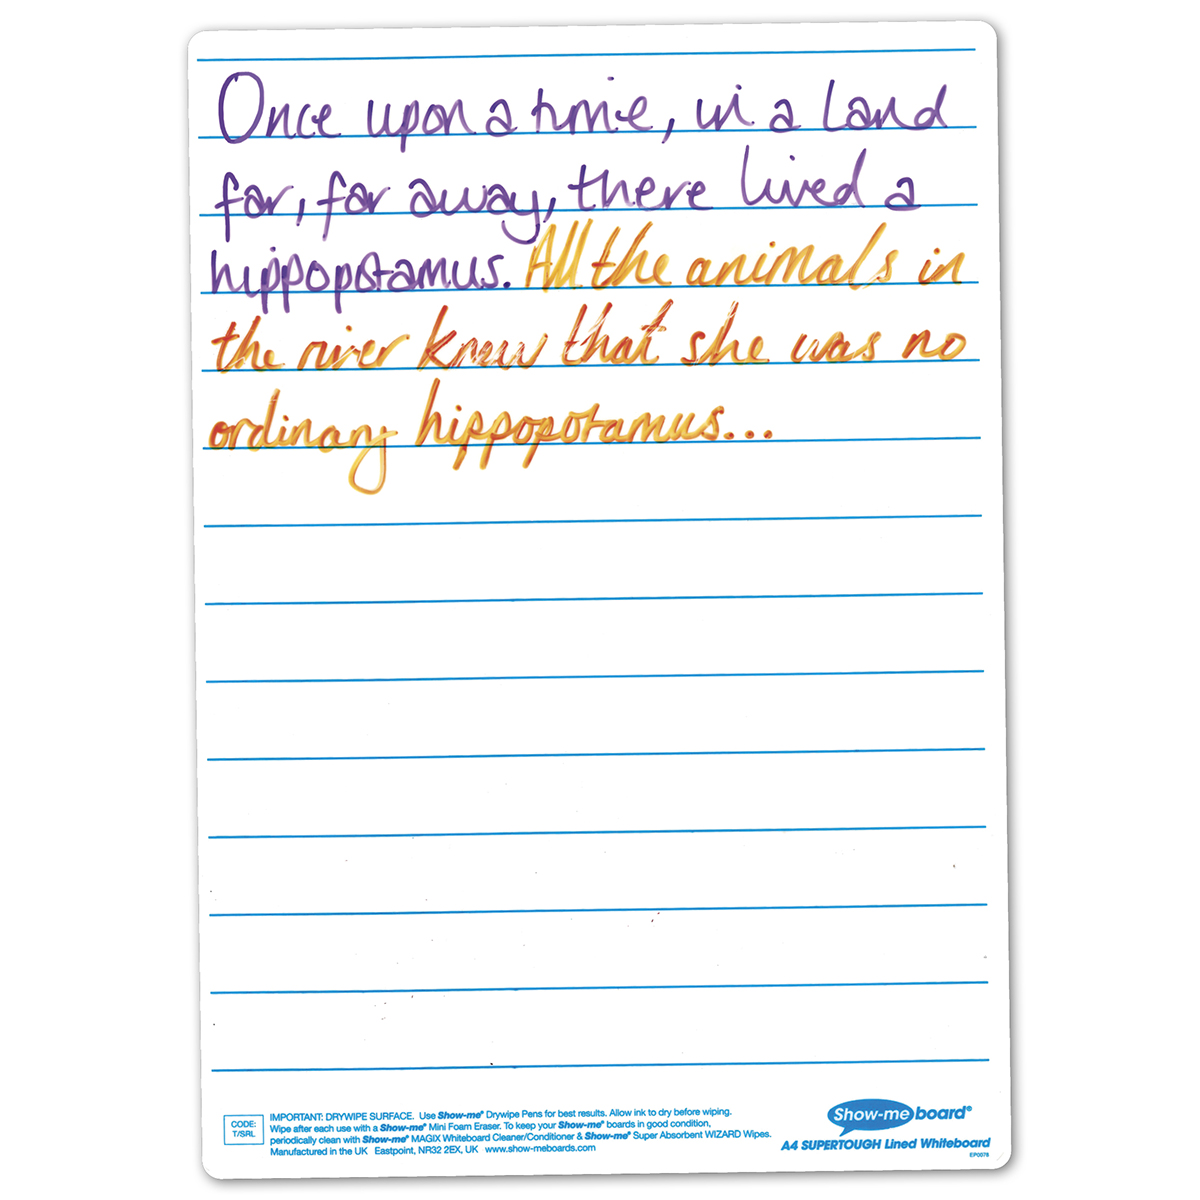 Once upon a time, in a land
far, far away, there lived a
hippopotamus. All the animals in
the river knew that she was no
ordinary hippopotamus...
CODE:
T/SRL
IMPORTANT: DRYWIPE SURFACE. Use Show-me® Drywipe Pens for best results. Allow ink to dry before wiping.
Wipe after each use with a Show-me® Mini Foam Eraser. To keep your Show-me® boards in good condition,
periodically clean with Show-me® MAGIX Whiteboard Cleaner/Conditioner & Show-me® Super Absorbent WIZARD Wipes.
Manufactured in the UK Eastpoint, NR32 2EX, UK www.show-meboards.com
Show-me board®
A4 SUPERTOUGH Lined Whiteboard
EP0078